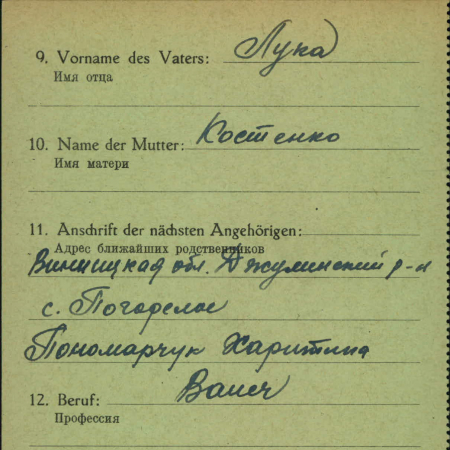 9. Vorname des Vaters: Лука
Имя отца
10. Name der Mutter: Костенко
Имя матери
11. Anschrift der nächsten Angehörigen:
Адрес ближайших родственников
Винницкая обл. Джулинский р-н
с. Погорелое
Пономарчук Харитина
12. Beruf:
Профессия